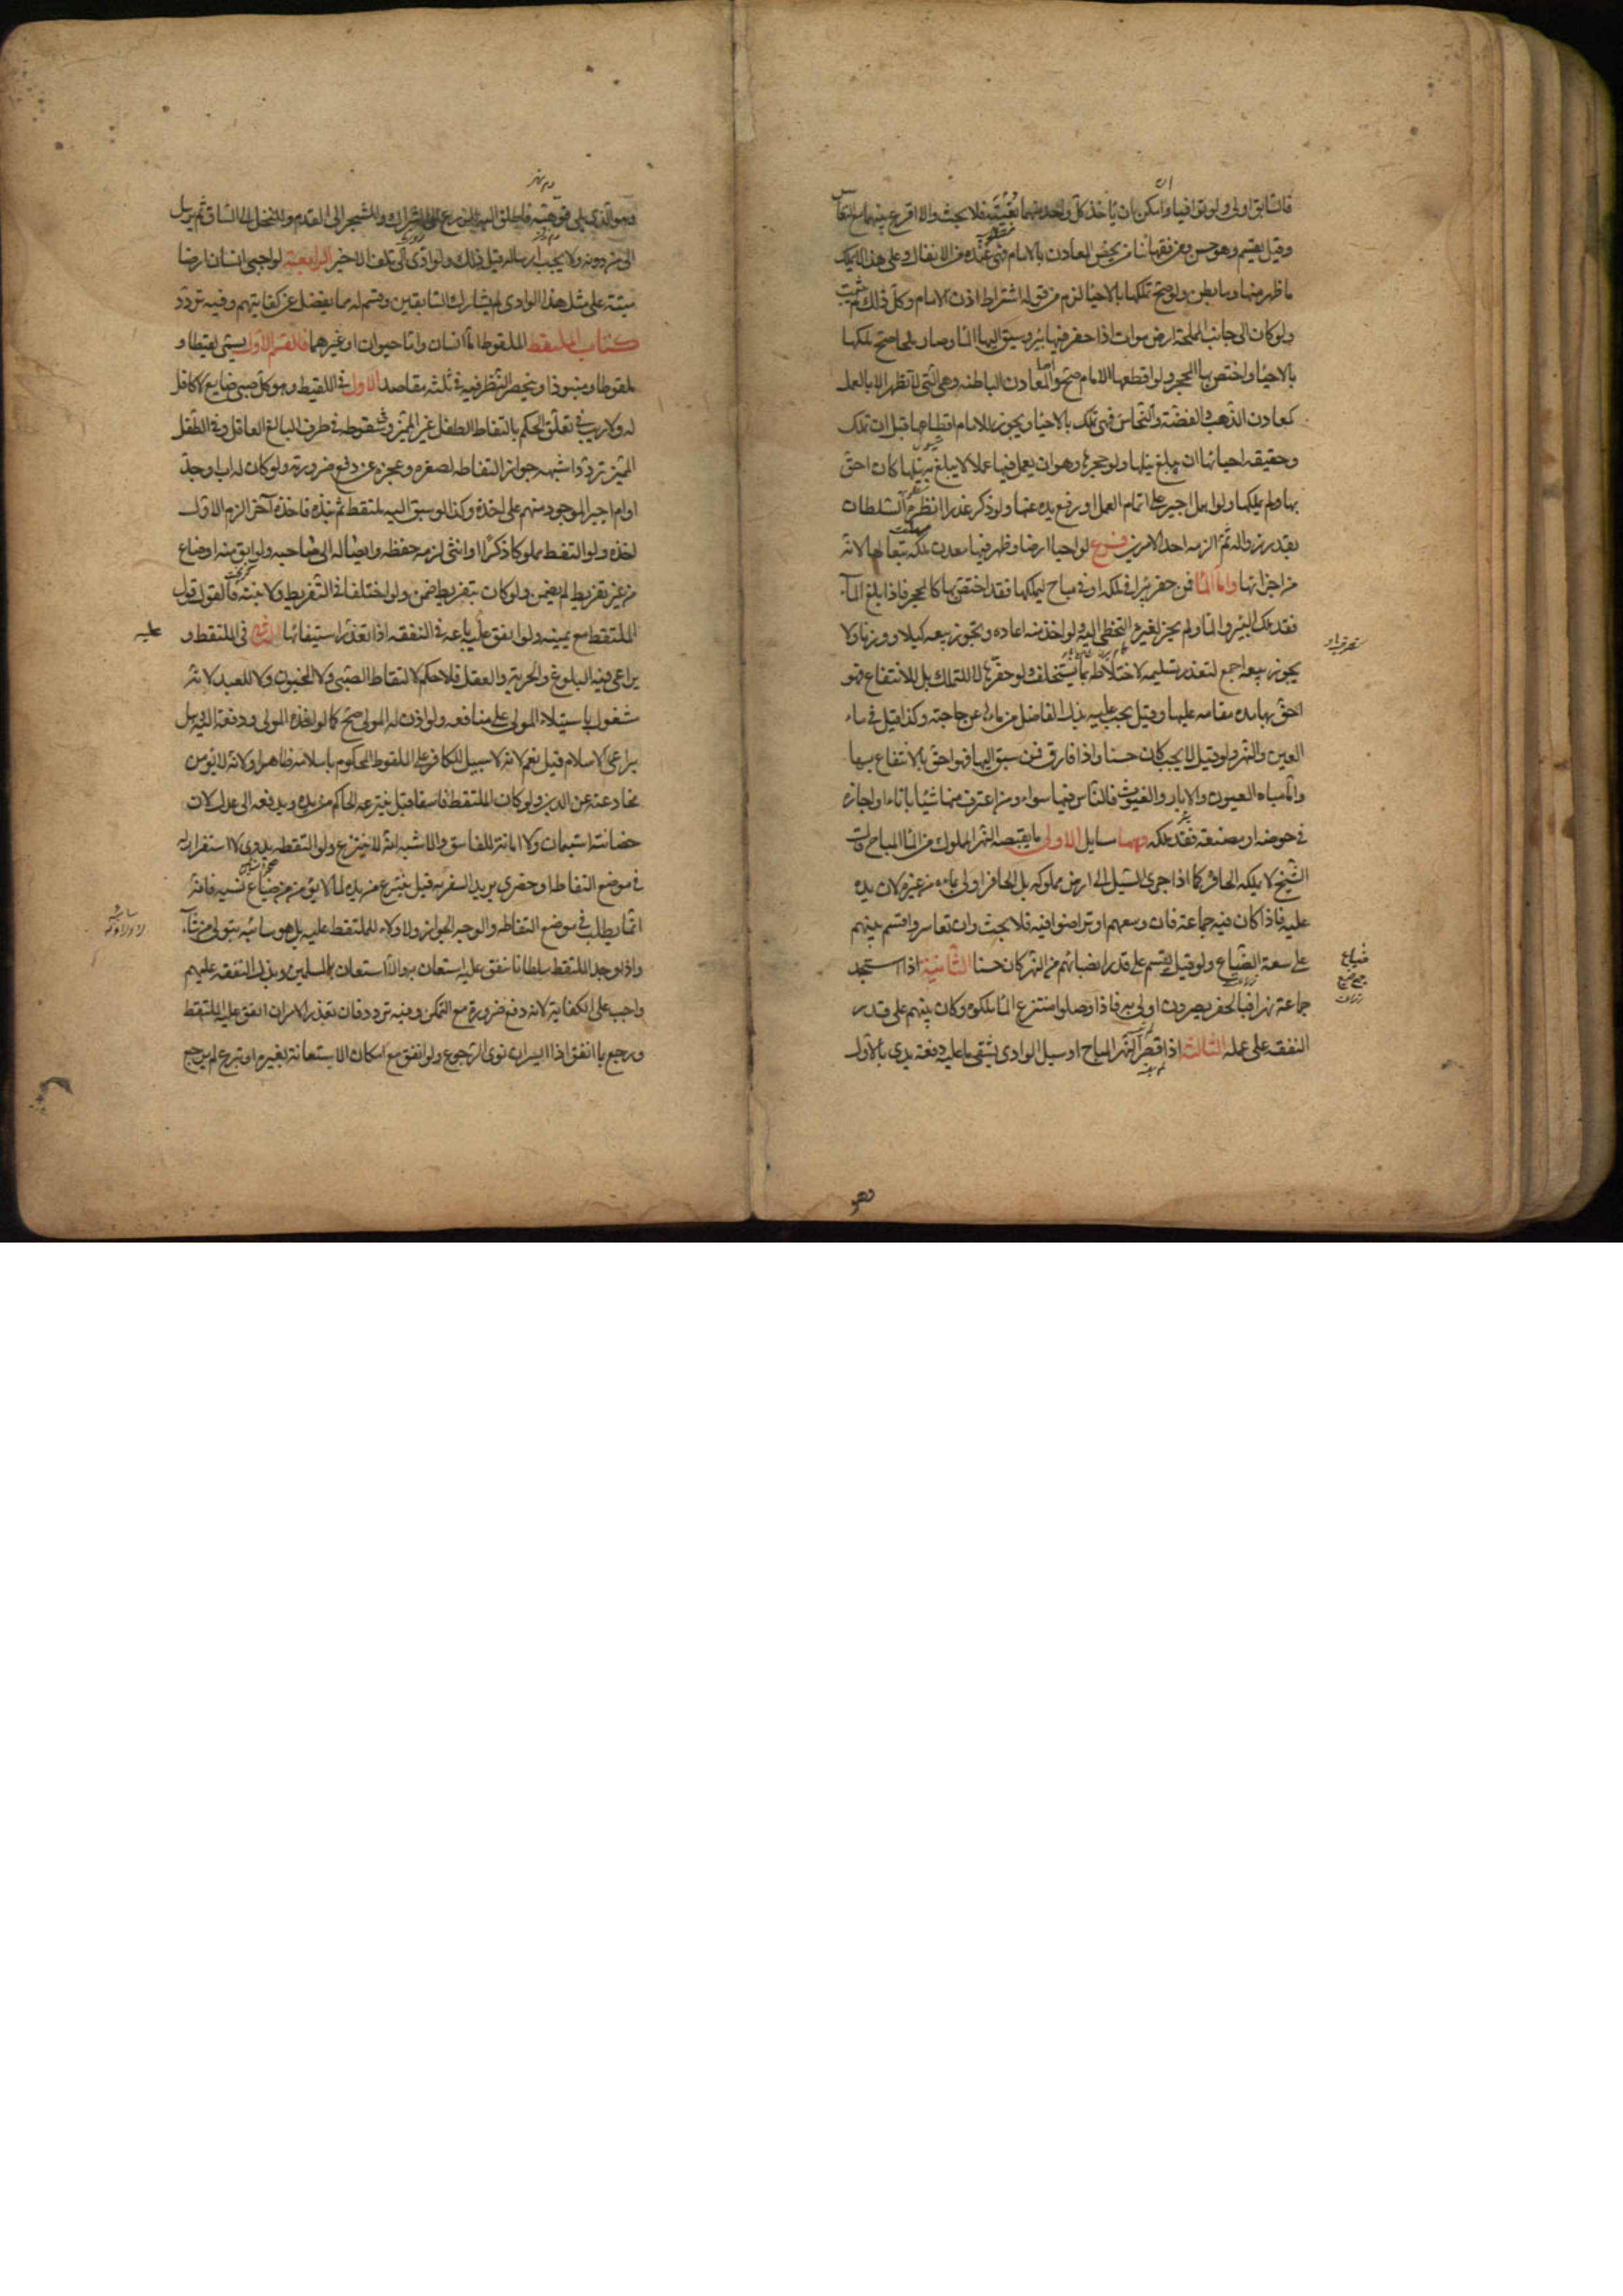 فالسابق اولى ولو توافيا وامكن ان ياخذ كل واحد منهما بغيته فلا بحث والا اقرع بينهما مع التعاسر
وقيل يقسم وهو حسن ومن فقهائنا من يخص المعادن بالامام فهي عنده من الانفال وعلى هذا لا يملك
ما ظهر منها وما بطن ولو صح تملكها بالاحياء لزم من قوله اشتراط اذن الامام وكل ذلك لم يثبت
ولو كان الى جانب المملحة ارض موات اذا حفر فيها بئر وسيق اليها الماء وصار ملحا صح ملكها
بالاحياء واختص بها المحجر ولو اقطعها الامام صح والمعادن الباطنه وهي التي لا تظهر الا بالعمل
كمعادن الذهب والفضة والنحاس فهي تملك بالاحياء ويجوز للامام اقطاعها قبل ان تملك
وحقيقه احيائها ان يبلغ نيلها ولو حجرها وهو ان يعمل فيها عملا لا يبلغ به نيلها كان احق
بها ولم يملكها ولو اهمل اجبر على اتمام العمل او رفع يده عنها ولو ذكر عذرا انظره السلطان
بقدر زواله ثم الزمه احد الامرين فرع لو احيا ارضا وظهر فيها معدن ملكه تبعا لها لانه
من اجزائها واما الماء فمن حفر بئرا في ملكه او في مباح ليملكها فقد اختص بها كالمحجر فاذا بلغ الماء
فقد ملك البئر والماء ولم يجز لغيره التخطي اليه ولو اخذ منه اعاده ويجوز بيعه كيلا ووزنا ولا
يجوز بيعه اجمع لتعذر تسليمه لاختلاطه بما يستخلف ولو حفرها لا للتملك بل للانتفاع فهو
احق بها مدة مقامه عليها وقيل يجب عليه بذل الفاضل من مائها عن حاجته وكذا قيل في ماء
العين والنهر ولو قيل لا يجب كان حسنا واذا فارق فمن سبق اليها فهو احق بالانتفاع بها
واما مياه العيون والابار والغيوث فالناس فيها سواء ومن اغترف منها شيئا باناء او احازه
في حوضه او مصنعه فقد ملكه وهنا مسايل الاولى ما يقبضه النهر المملوك من الماء المباح قال
الشيخ لا يملكه الحافر كما اذا جرى السيل الى ارض مملوكه بل الحافر اولى بمائه من غيره لان يده
عليه فاذا كان فيه جماعة فان وسعهم او تراضوا فيه فلا بحث وان تعاسروا قسم بينهم
على سعة الضياع ولو قيل يقسم على قدر انصبائهم من النهر كان حسنا الثانية اذا استجد
جماعة نهرا فبالحفر يصيرون اولى به فاذا وصلوا منتزع الماء ملكوه وكان بينهم على قدر
النفقه على عمله الثالثة اذا قصر النهر المباح او سيل الوادي يسقي ما عليه دفعة بدئ بالاول
ضياع
جمع ضيع
وهو الذي يلي فوهته فاطلق اليه للزرع الى الشراك وللشجر الى القدم وللنخل الى الساق ثم يرسل
الى من دونه ولا يجب ارساله قبل ذلك ولو ادى الى تلف الاخير الرابعة لو احيى انسان ارضا
ميتة على مثل هذا الوادي لم يشارك السابقين وقسم له ما يفضل عن كفايتهم وفيه تردد
كتاب الملتقط الملقوط اما انسان واما حيوان او غيرهما فالقسم الاول يسمى لقيطا و
ملقوطا ومنبوذا وينحصر النظر فيه في ثلثة مقاصد الاول في اللقيط وهو كل صبي ضايع لا كافل
له ولا ريب في تعلق الحكم بالتقاط الطفل غير المميز وسقوطه في طرف البالغ العاقل وفي الطفل
المميز تردد اشبهه جواز التقاطه لصغره وعجزه عن دفع ضرورته ولو كان له اب او جد
او ام اجبر الموجود منهم على اخذه وكذا لو سبق اليه ملتقط ثم نبذه فاخذه آخر الزم الاول
اخذه ولو التقط مملوكا ذكرا او انثى لزمه حفظه وايصاله الى صاحبه ولو ابق منه او ضاع
من غير تفريط لم يضمن ولو كان بتفريط ضمن ولو اختلفا في التفريط ولا بينه فالقول قول
الملتقط مع يمينه ولو انفق عليه باعه في النفقه اذا تعذر استيفائها الثاني في الملتقط و
يراعى فيه البلوغ والحرية والعقل فلا حكم لالتقاط الصبي ولا المجنون ولا للعبد لانه
مشغول باستيلاء المولى على منافعه ولو اذن له المولى صح كما لو اخذه المولى ودفعه اليه وهل
يراعى الاسلام قيل نعم لانه لا سبيل للكافر على الملقوط المحكوم باسلامه ظاهرا ولانه لا يؤمن
مخادعته عن الدين ولو كان الملتقط فاسقا قيل ينتزعه الحاكم من يده ويدفعه الى عدل لان
حضانته استيمان ولا امانة للفاسق والاشبه انه لا ينتزع ولو التقطه بدوي لا استقرار له
في موضع التقاطه او حضري يريد السفر به قيل ينتزع من يده لما لا يؤمن من ضياع نسبه فانه
انما يطلب في موضع التقاطه والوجه الجواز ولا ولاء للملتقط عليه بل هو سائبه يتولى من شاء
واذا وجد الملتقط سلطانا ينفق عليه استعان به والا استعان بالمسلمين وبذل النفقه عليهم
واجب على الكفاية لانه دفع ضرورة مع التمكن وفيه تردد فان تعذر الامران انفق عليه الملتقط
ورجع بما انفق اذا ايسر ان نوى الرجوع ولو انفق مع امكان الاستعانة بغيره او تبرع لم يرجع
عليه